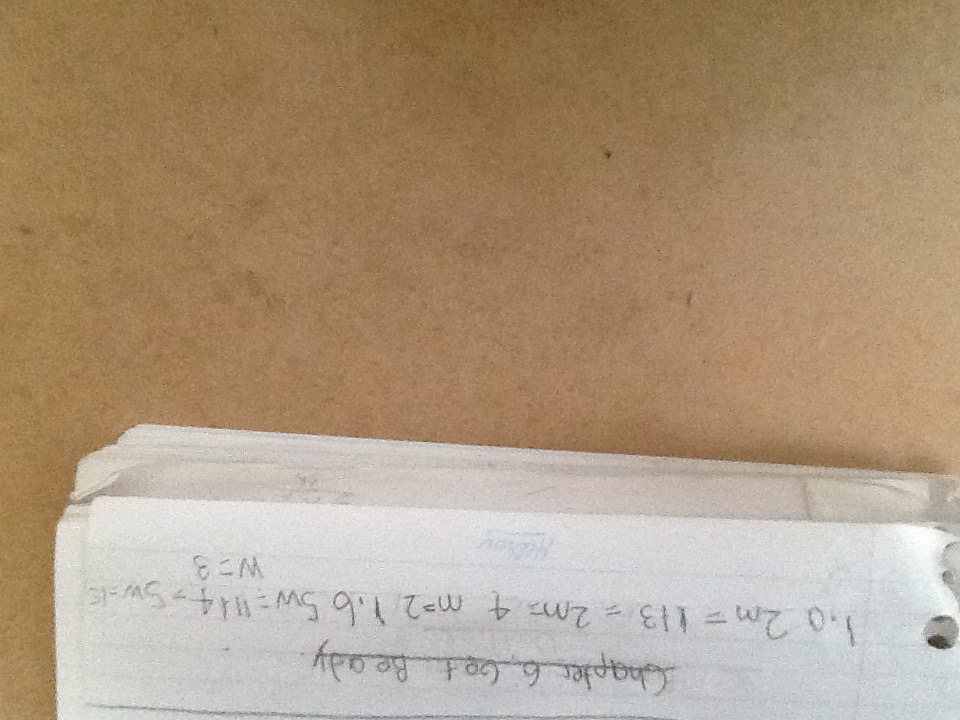 Chapter 6 Get Ready.
1.a 2m = 1+3 = 2m= 4 m=2 1.b 5w = 11+4 = 5w=15
w=3
Hilroy